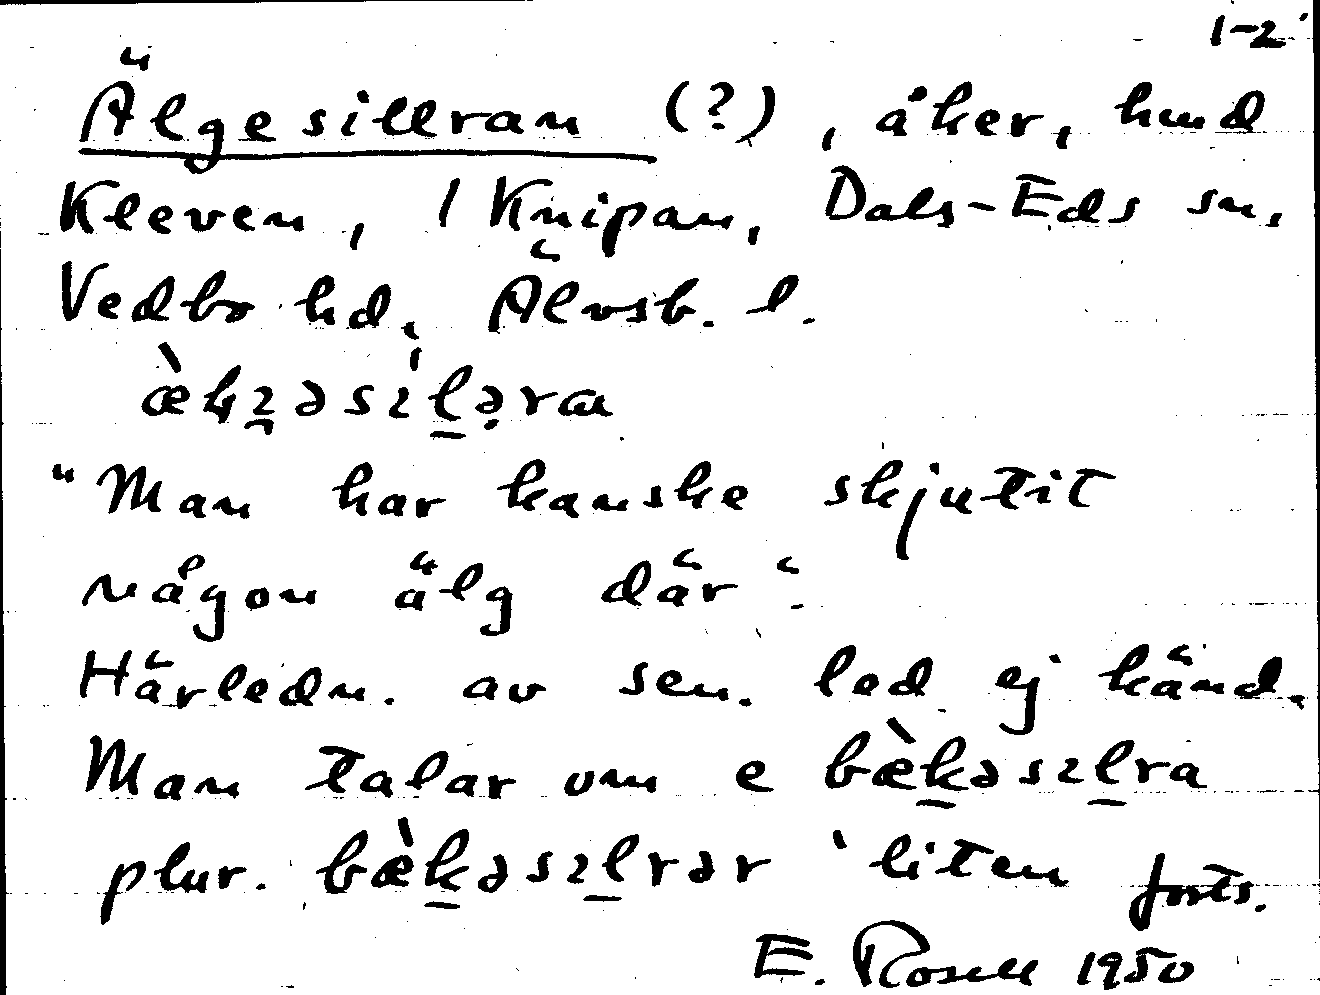 1-2
Älgesillran (?), åker, hmd
Kleven, 1 Knipan, Dals-Eds sn,
Vedbo hd, Älvsb. l.
"Man har kanske skjutit
någon älg där".
Härledn. av sen. led ej känd.
Man talar om e bæ̀kəsɩlra
plur. bæ̀kəsɩlrər 'liten forts.
E. Rosell 1950